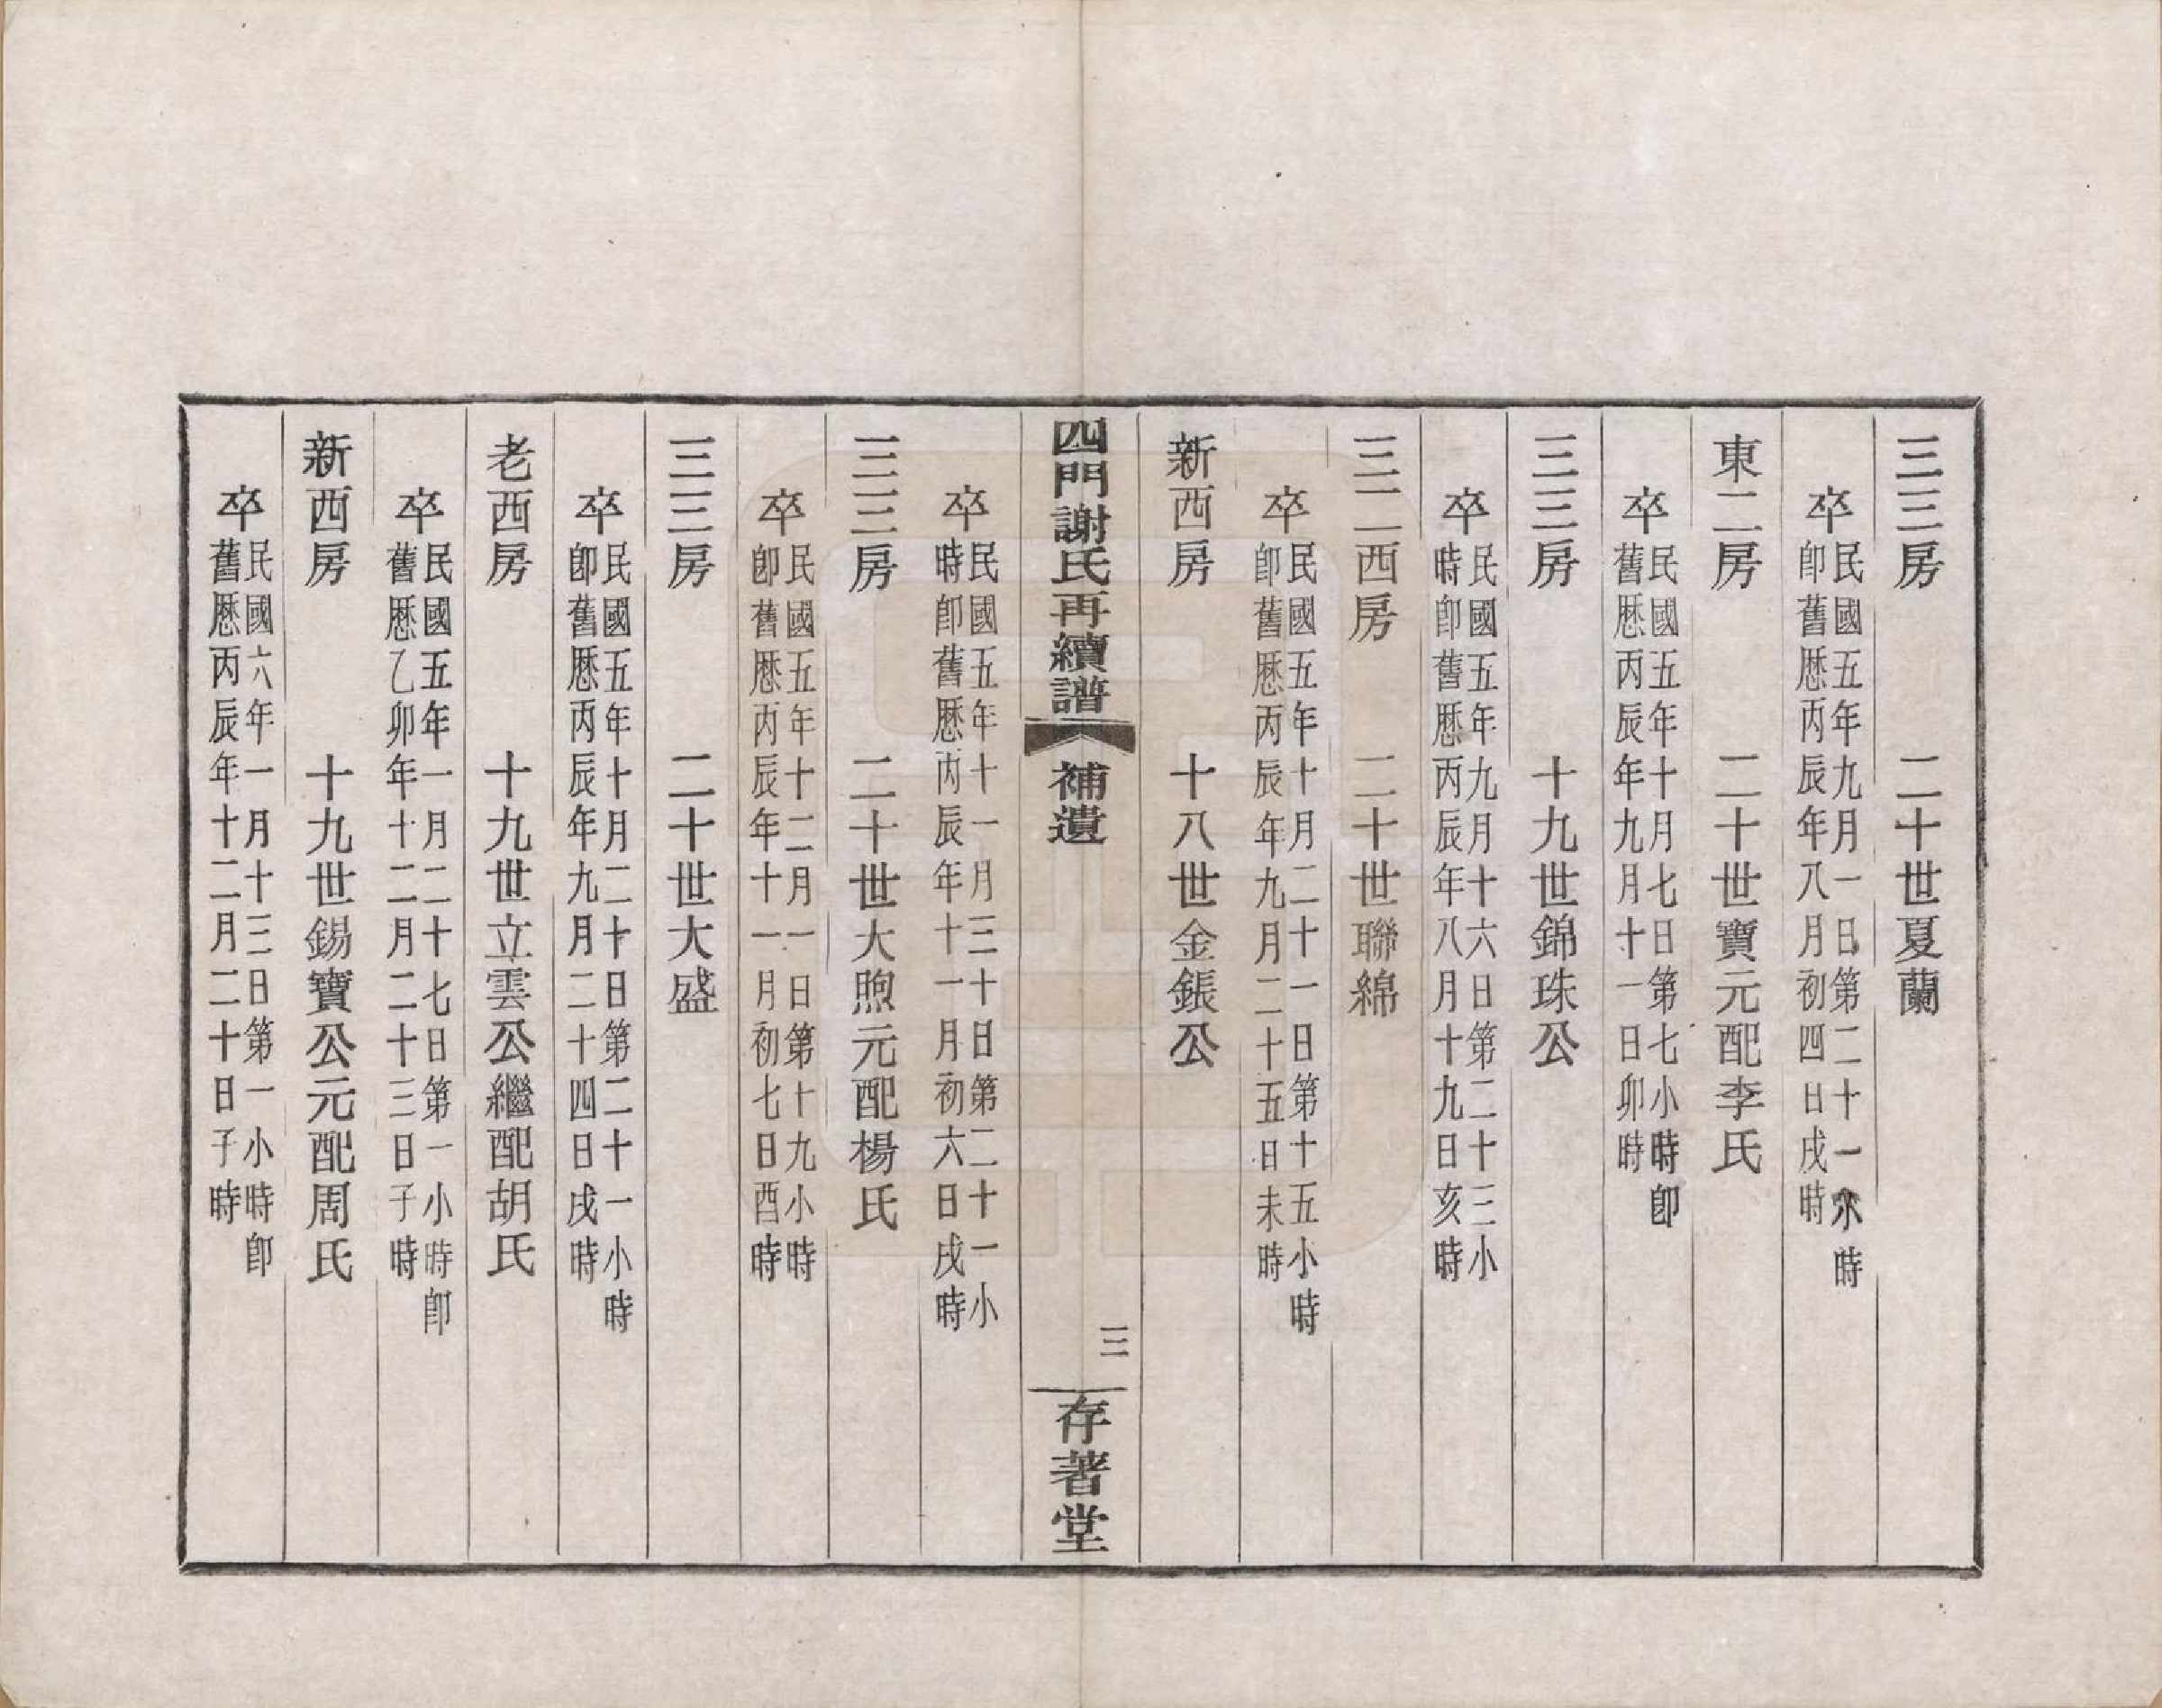 三三房　二十世夏蘭
卒民國五年九月一日第二十一小時
即舊厯丙辰年八月初四日戌時
東二房　二十世寶元配李氏
卒民國五年十月七日第七小時即
舊厯丙辰年九月十一日卯時
三三房　十九世錦珠公
卒民國五年九月十六日第二十三小
時即舊厯丙辰年八月十九日亥時
三二西房　二十世聯綿
卒民國五年十月二十一日第十五小時
即舊厯丙辰年九月二十五日未時
新西房　十八世金鋹公
四門謝氏再續譜　補遺　三　存著堂
卒民國五年十一月三十日第二十一小
時即舊厯丙辰年十一月初六日戌時
三三房　二十世大煦元配楊氏
卒民國五年十二月一日第十九小時
即舊厯丙辰年十一月初七日酉時
三三房　二十世大盛
卒民國五年十月二十日第二十一小時
即舊厯丙辰年九月二十四日戌時
老西房　十九世立雲公繼配胡氏
卒民國五年一月二十七日第一小時即
舊厯乙卯年十二月二十三日子時
新西房　十九世錫寶公元配周氏
卒民國六年一月十三日第一小時即
舊厯丙辰年十二月二十日子時